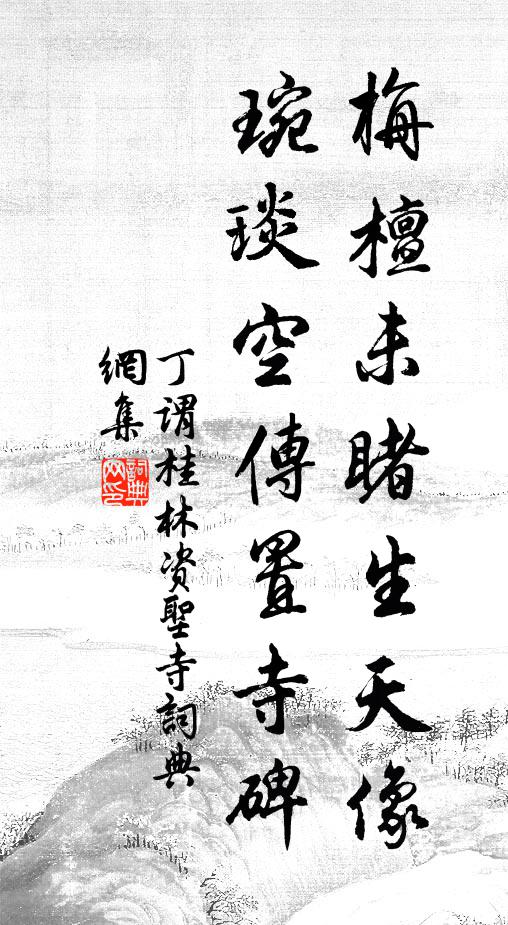 栴檀未睹生天像
琬琰空傳置寺碑
丁謂桂林资聖寺詞典
網集
詞典
网印